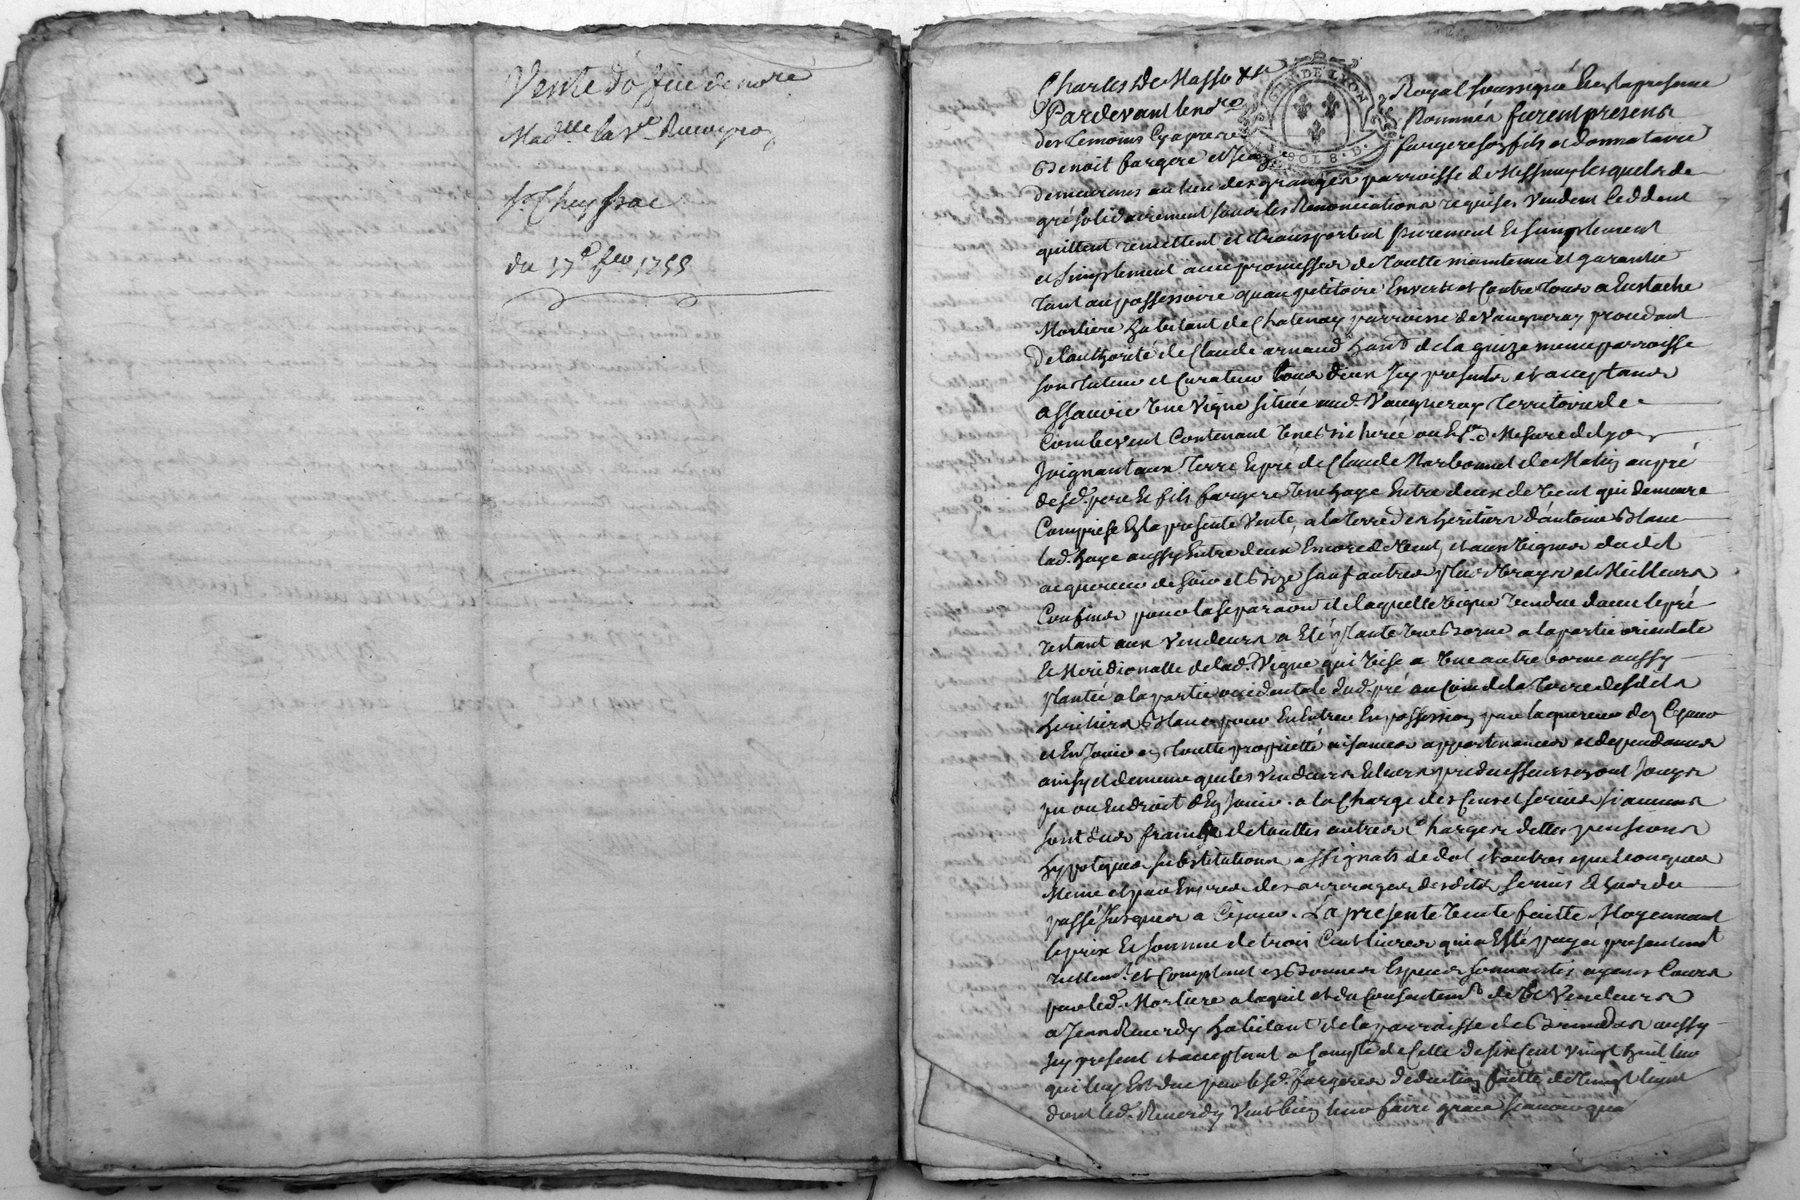 Vente d'office de no.re
Mad.lle la V.e
Sr Cheyssac
du 17e fev 1755
Charles De Masso &a
Pardevant le no.re Royal soussigné Et En la presence
des Temoins Cy apres Nommés furent presens
Benoit fargere et fargere son fils et donnataire
demeurans au lieu des granges parroisse de Messimy lesquels de
gré solidairement sous les Renonciations requises vendent Ceddent
quittent remettent et transportent purement Et simplement
et simplement avec promesse de toutte maintenue et garantie
tant au possessoire quau petitoire Envers et Contre tous a Eustache
Mortiere habitant de Chatenay parroisse de Vaugneray procedant
De lauthorité de Claude arnaud hant de la meme parroisse
son tuteur et Curateur tous deux Icy presents et acceptants
assavoir Une Vigne située aud. Vaugneray Territoire de
Combevent Contenant Une Bicherée ou En.on Mesure de Lyon
Joignant aux Terre Et pré de Claude Narbonnet de Matin au pré
desd. pere Et fils fargere Une haye Entre deux de Vent qui demeure
Comprise En la presente Vente, a la terre des heritiers d'antoine Blanc
lad. haye aussy Entre deux Encore de Vent, et aux Vignes dudit
acquereur de soir et Bize sauf autres plus Vrays et Meilleurs
Confins pour la separaon de laquelle Vigne Vendue davec le pré
restant aux Vendeurs a Eté plantée Une Borne a la partie orientale
Et Meridionalle de lad. Vigne qui Vise a Une autre borne aussy
plantée a la partie occidentale dud. pré au Coin de la Terre desdits
heritiers Blanc pour En Entrer En possession par lacquereur dez Cejour
et En Jouir En toutte proprieté aisances appartenances et dependances
ainsy et de meme que les Vendeurs Et leurs predecesseurs En ont Jouy
pu ou En droit d'En Jouir. a la Charge des Cens et servis si aucuns
sont dus franche de touttes autres Charges dettes pensions
hypotques substitutions assignats de dot et autres quelconques
Meme et par Exprés des arrerages desdits servis Echus du
passé Jusques a Cejour. La presente Vente faitte Moyennant
le prix Et somme de trois Cent livres qui a Esté payée presentemt
reellemt. et Comptant en Bonnes Especes sonnantes ayans Cours
par led. Mortiere alaquit et du Consentemt. de Vendeurs
a Jean habitant de la parroisse de Brindas aussy
Icy present et acceptant a Compte de Celle de six Cent Vingt huit liv
qui luy Est due par lesd. fargeres deduction faitte de Vingt huit
dont led. Veut bien leur faire grace